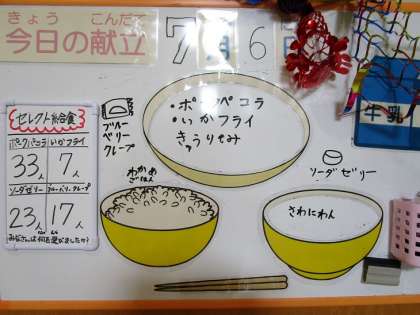 きょう こんだて
今日の献立
7月6日
セレクト給食
ポークペコラ いかフライ
33人 7人
ソーダゼリー ブルーベリークレープ
23人 17人
みなさんは何を選びましたか?
ブルー
ベリー
クレープ
・ポークペコラ
・いかフライ
きゅうりもみ
ソーダゼリー
牛乳
わかめ
ごはん
さわにわん